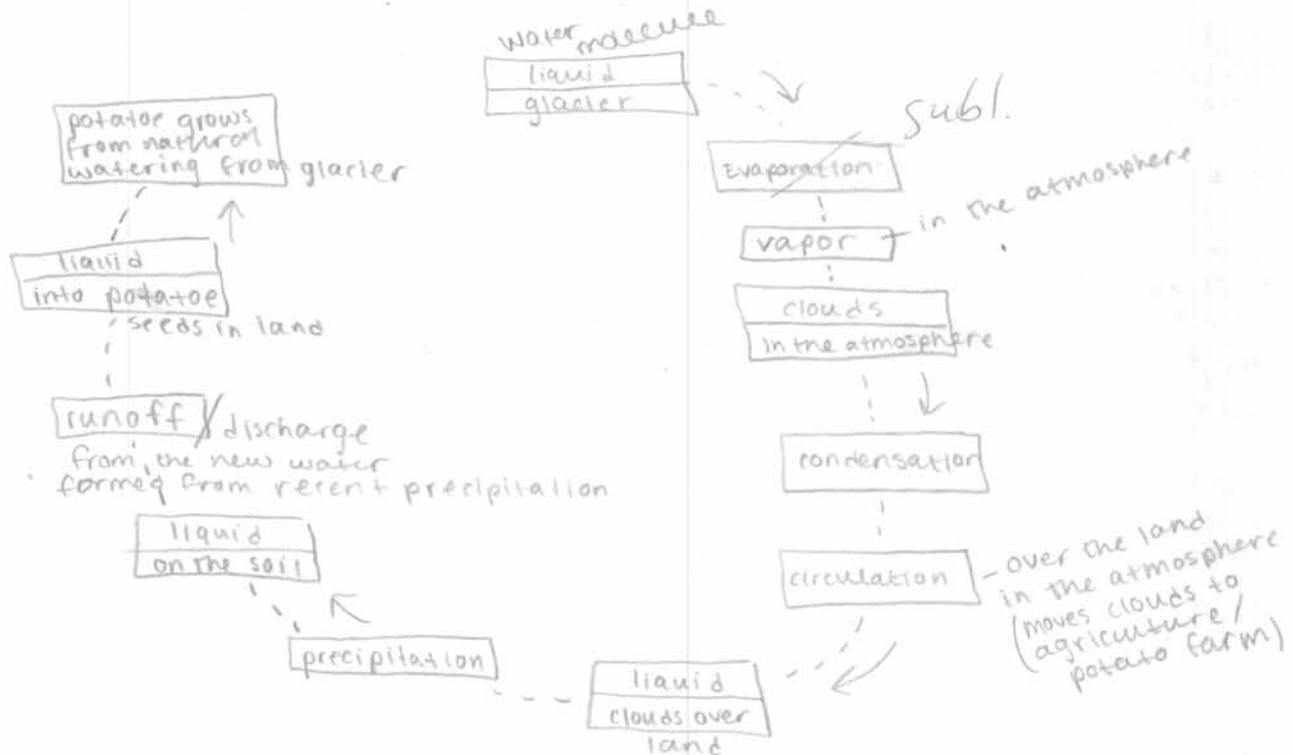 water molecule
liquid
glacier
subl.
Evaporation
vapor
in the atmosphere
clouds
in the atmosphere
condensation
circulation
over the land
in the atmosphere
(moves clouds to
agriculture/
potato farm)
liquid
clouds over
land
precipitation
liquid
on the soil
runoff / discharge
from the new water
formed from recent precipitation
liquid
into potatoe
seeds in land
potatoe grows
from natural
watering from glacier